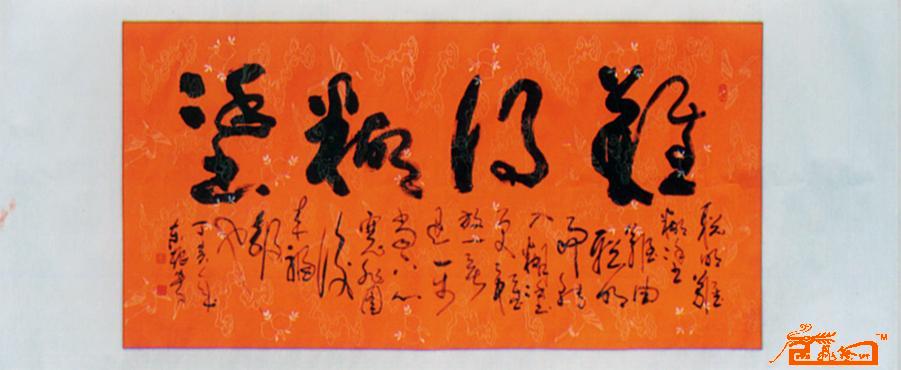 難得糊塗
聰明難
糊塗
難由
聰明
而轉
入糊塗
更難
放一著
退一步
當下心
安非圖
後
来福
報
也
丁亥年